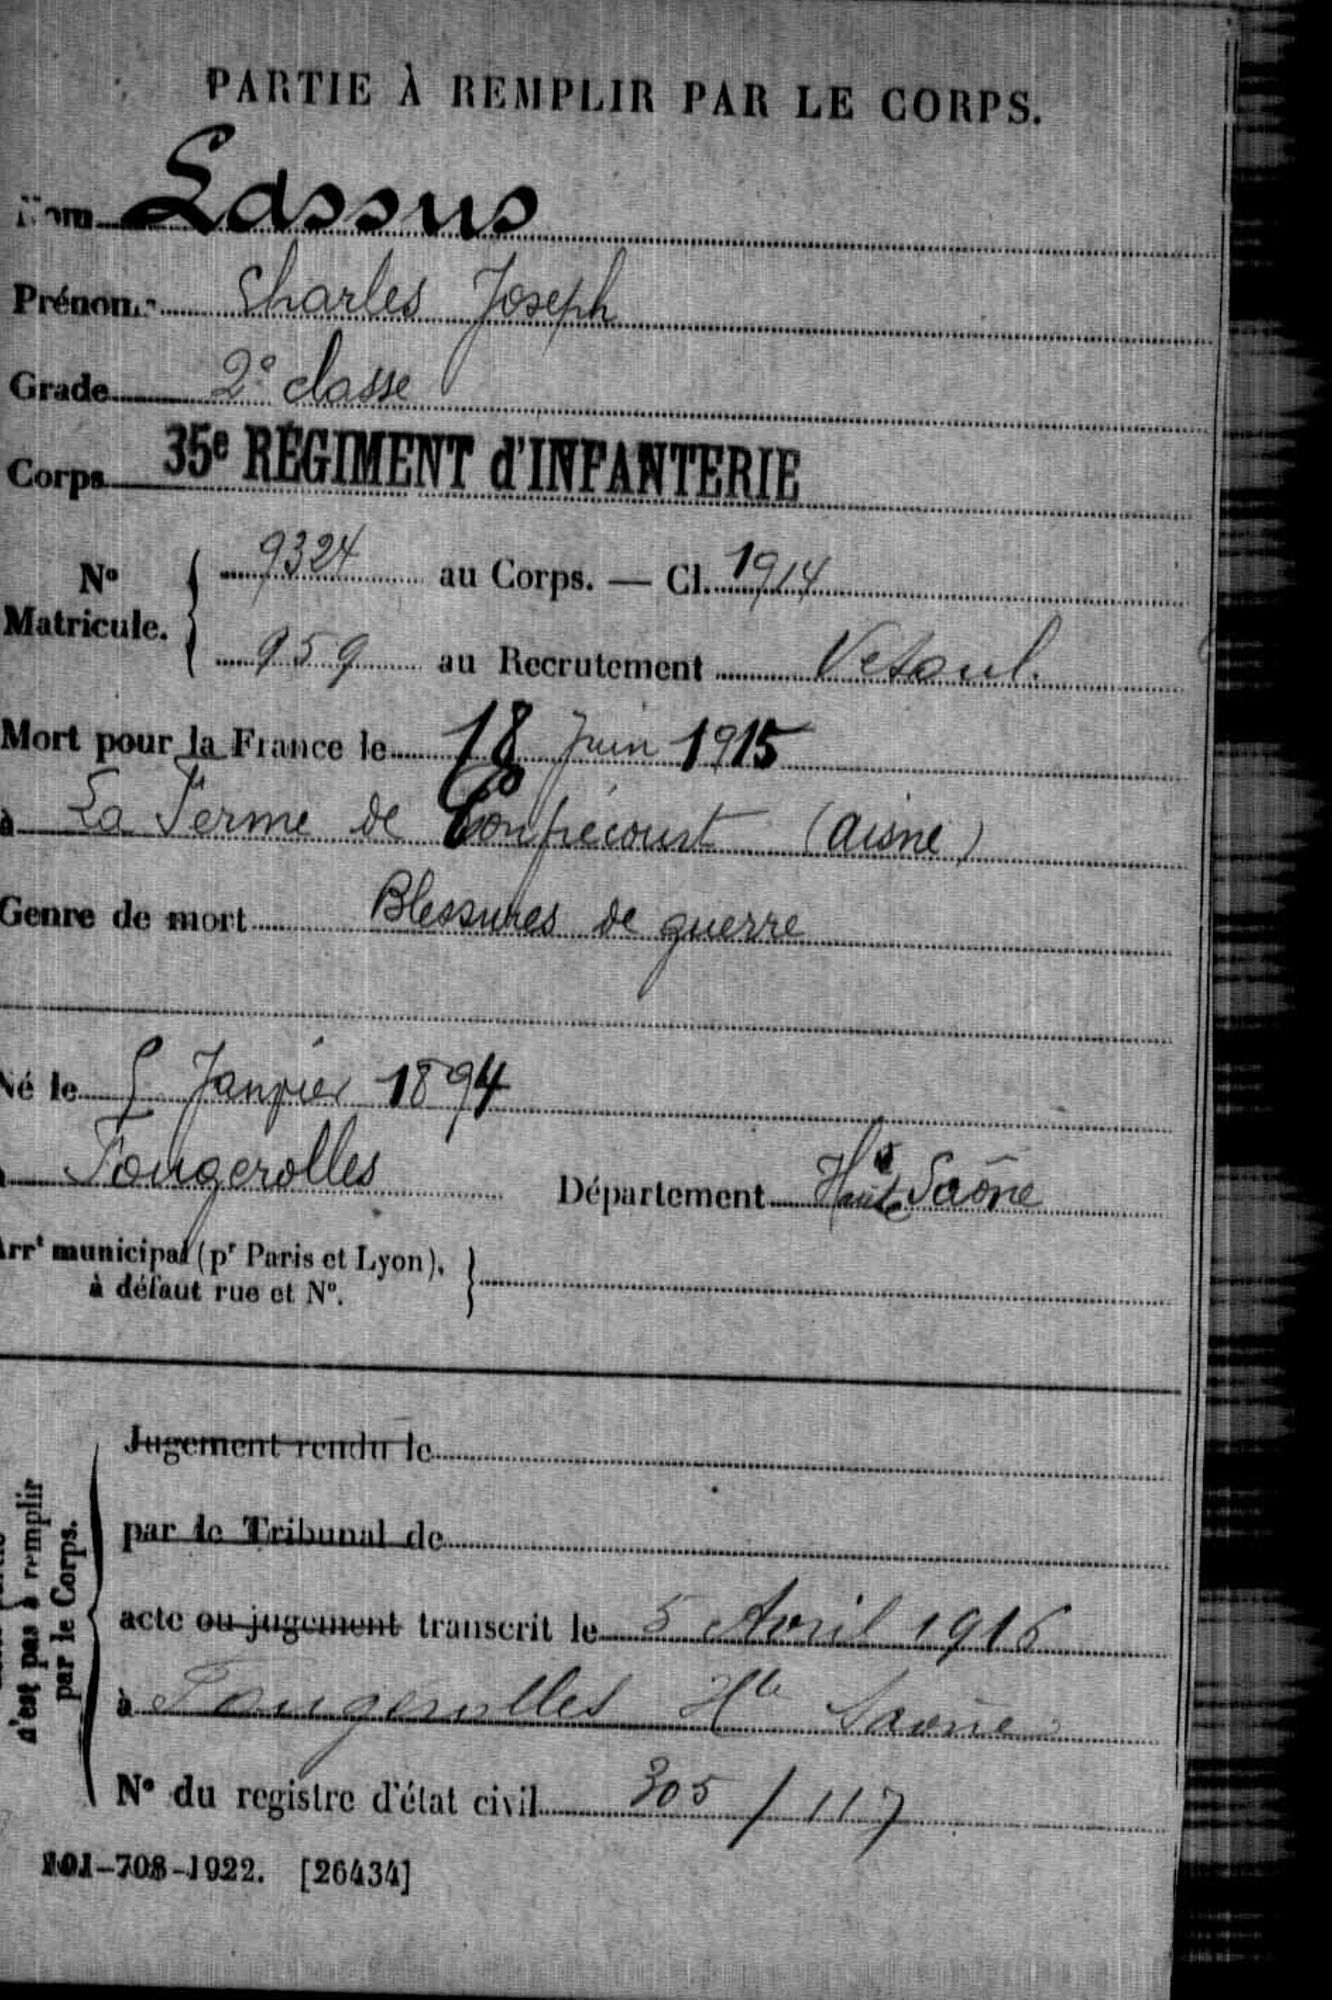 PARTIE À REMPLIR PAR LE CORPS.
Nom Lassus
Prénoms Charles Joseph
Grade 2e classe
Corps 35e RÉGIMENT d'INFANTERIE
No Matricule. { 9324 au Corps. — Cl. 1914
959 au Recrutement Vesoul.
Mort pour la France le 18 Juin 1915
à La Ferme de Confrécourt (Aisne)
Genre de mort Blessures de guerre
Né le 5 Janvier 1894
à Fougerolles Département Haute Saône
Arrt municipal (pr Paris et Lyon), }
à défaut rue et No.
Jugement rendu le
par le Tribunal de
acte ou jugement transcrit le 5 Avril 1916
à Fougerolles Hte Saône
No du registre d'état civil 305 / 117
n'est pas à remplir
par le Corps.
101-708-1922. [26434]